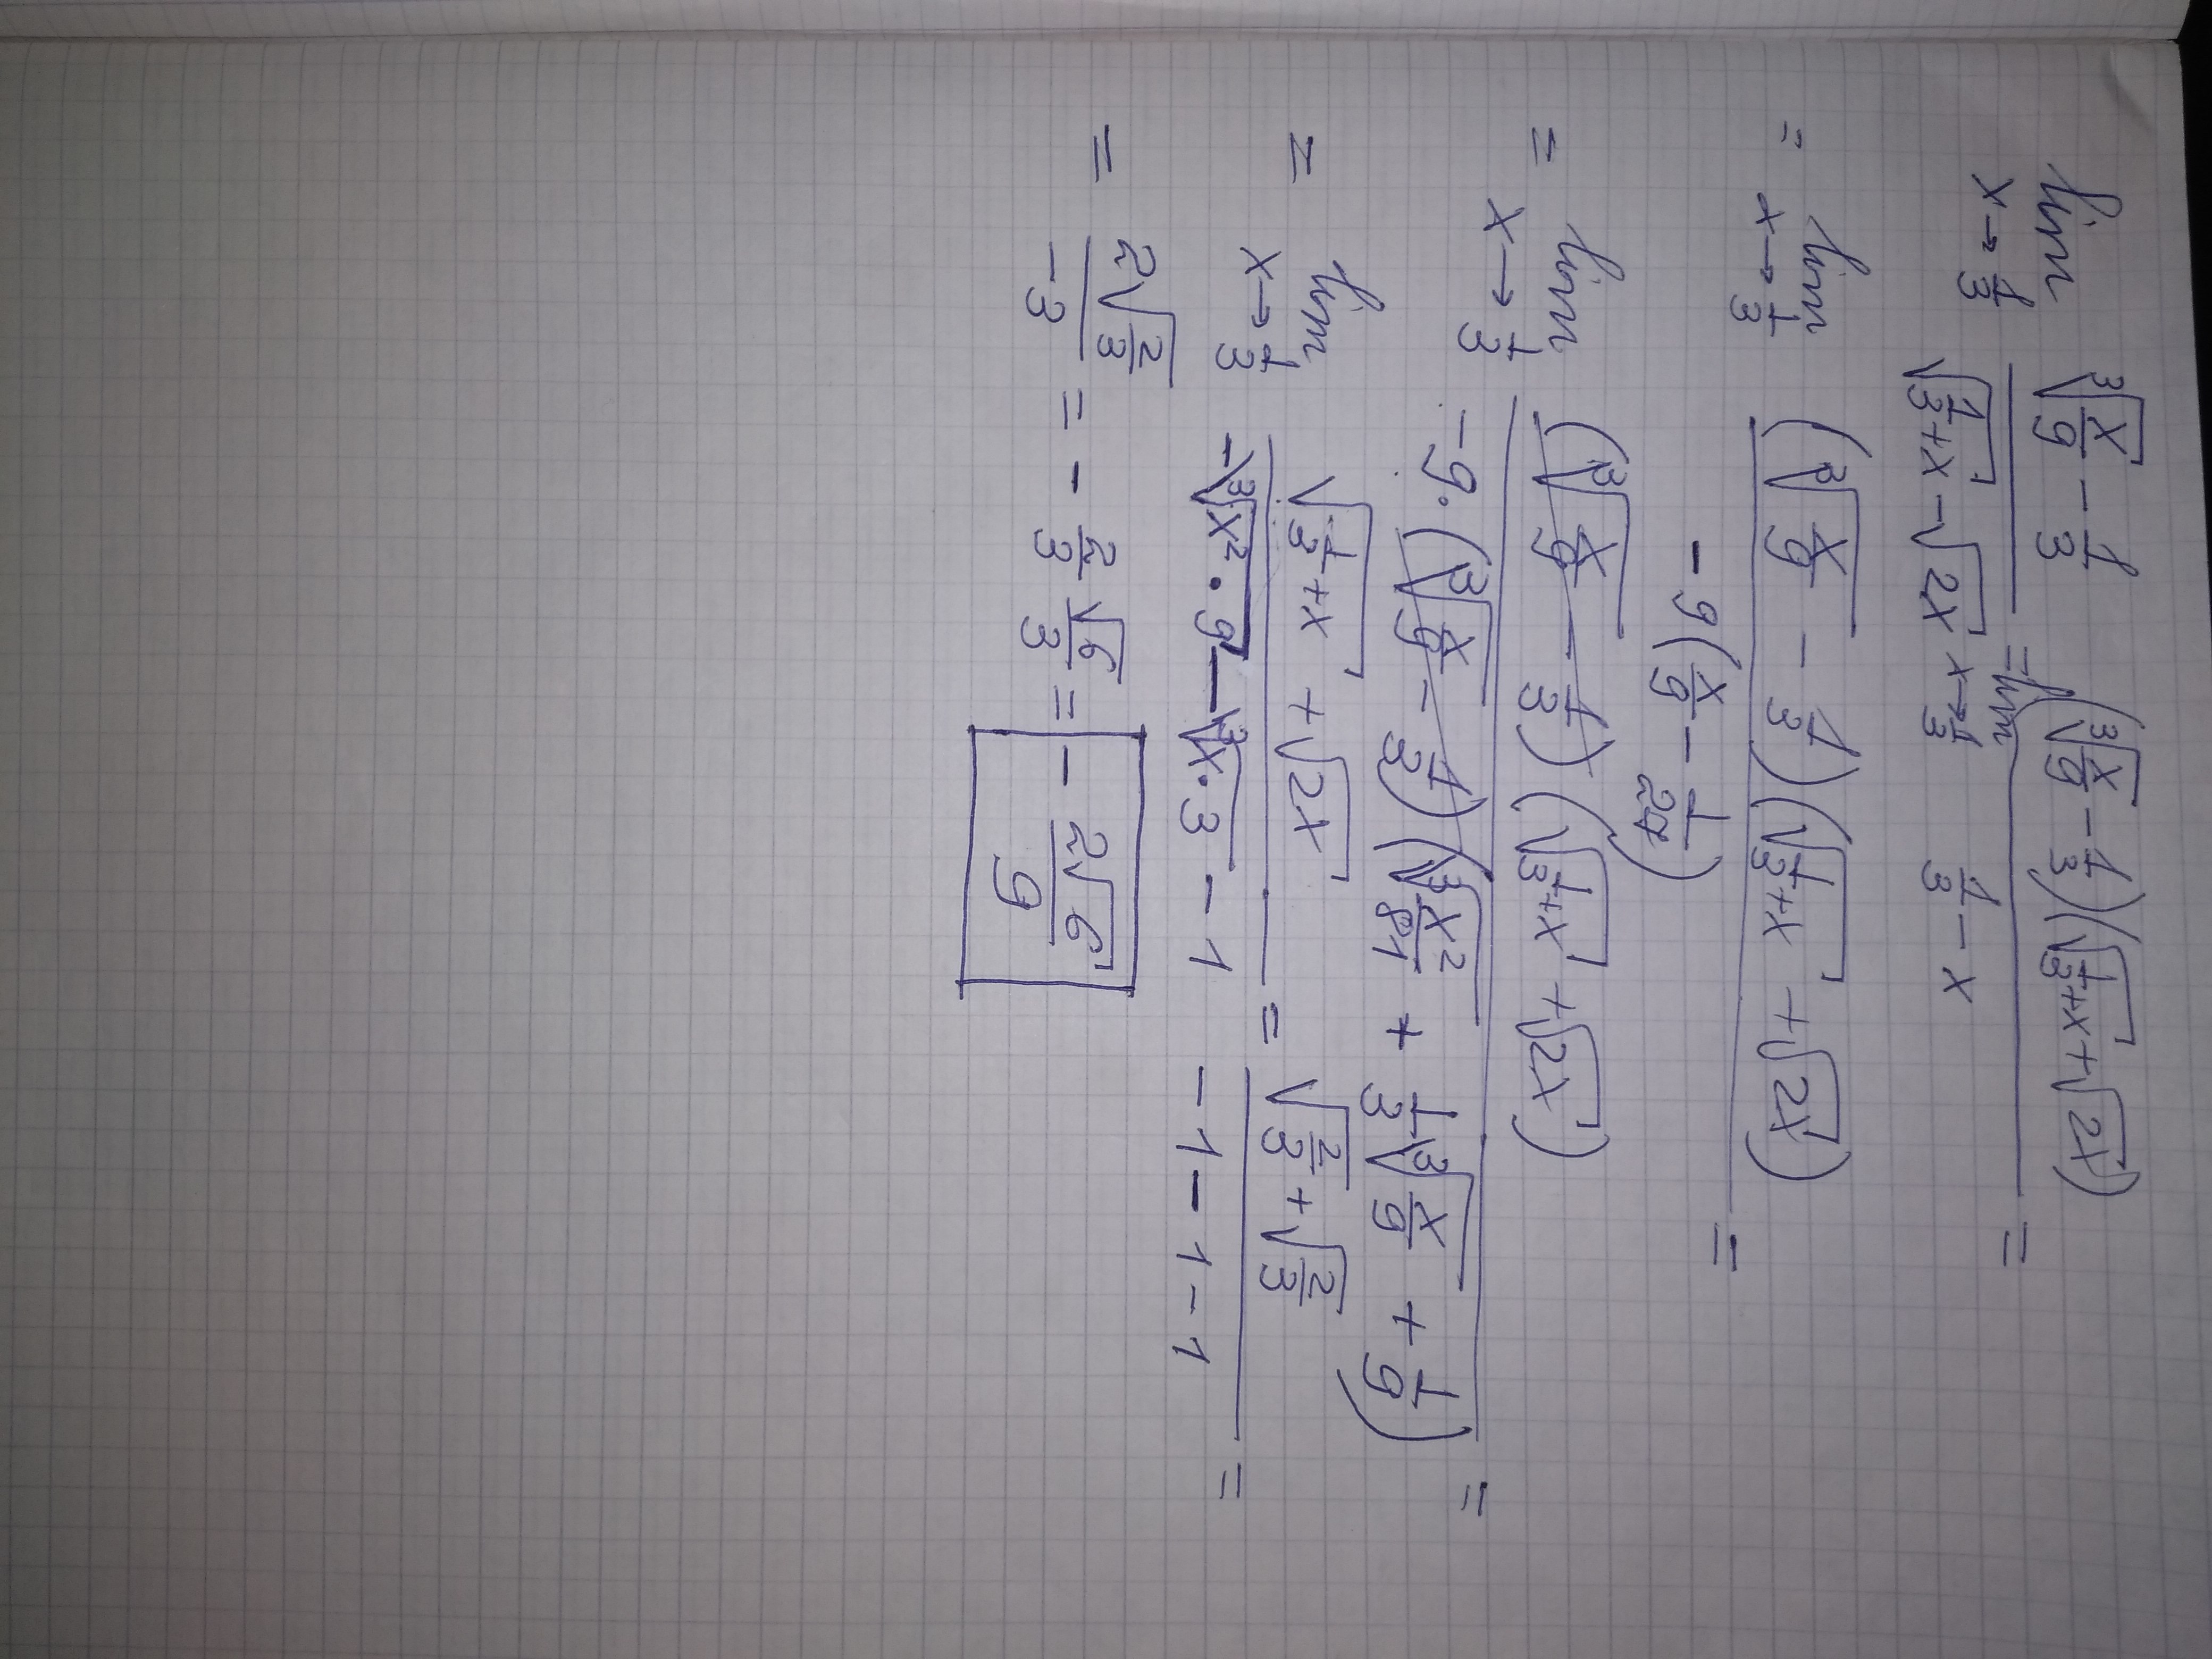 lim x→1/3 (∛(x/9) − 1/3)/(√(1/3+x) − √2x) = lim x→1/3 ((∛(x/9) − 1/3)(√(1/3+x) + √2x))/(1/3 − x) =
= lim x→1/3 ((∛(x/9) − 1/3)(√(1/3+x) + √2x))/(−9(x/9 − 1/27)) =
= lim x→1/3 ((∛(x/9) − 1/3)(√(1/3+x) + √2x))/(−9·(∛(x/9) − 1/3)(∛(x²/81) + 1/3∛(x/9) + 1/9)) =
= lim x→1/3 (√(1/3+x) + √2x)/(−∛(x²·9) − ∛(x·3) − 1) = (√(2/3) + √(2/3))/(−1−1−1) =
= 2√(2/3)/−3 = − 2/3 √6/3 = − 2√6/9